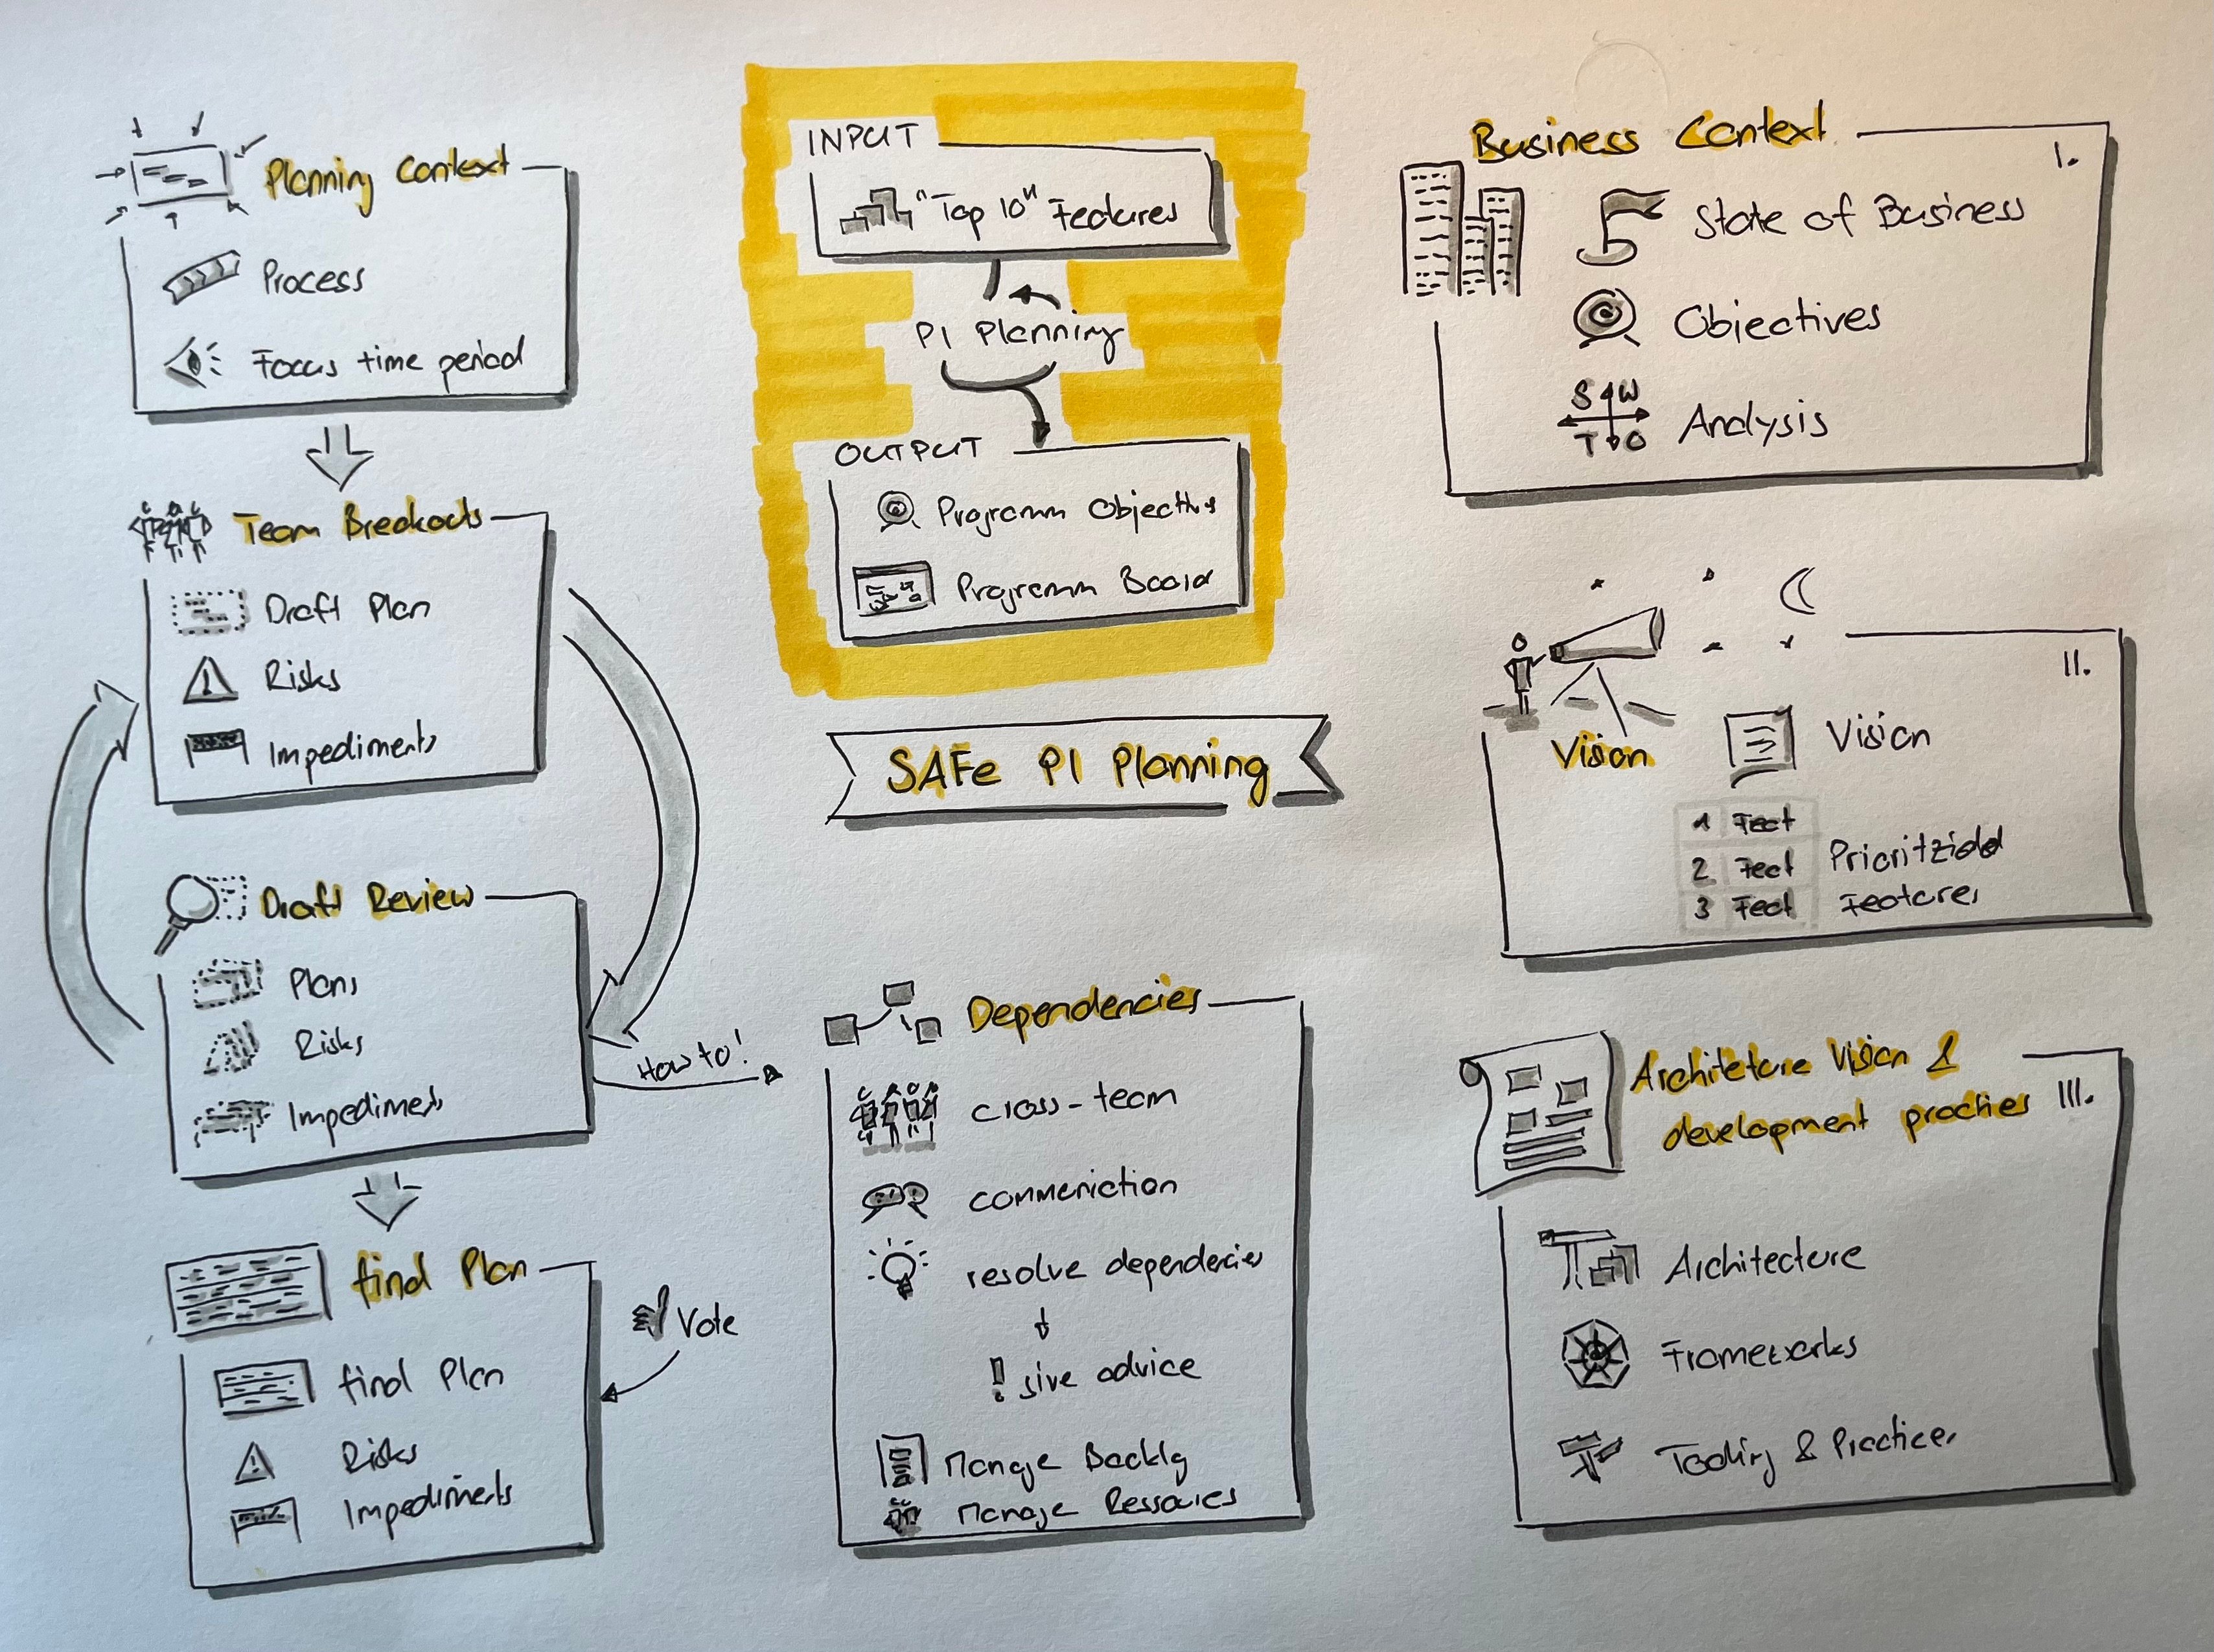 Planning Context
Process
Focus time period
Team Breakouts
Draft Plan
Risks
Impediments
Draft Review
Plans
Risks
Impediments
How to!
find Plan
find Plan
Risks
Impediments
Vote
INPUT
"Top 10" Features
PI Planning
OUTPUT
Programm Objectives
Programm Board
SAFe PI Planning
Dependencies
cross-team
commeniction
resolve dependencies
! give advice
Manage Backlg
Manage Ressources
Business Context
I.
State of Business
Objectives
S W
T O
Analysis
II.
Vision
Vision
1 Feat
2 Feat
3 Feat
Prioritzied
Features
Architeture Vision &
development practies
III.
Architecture
Frameworks
Tooling & Practices